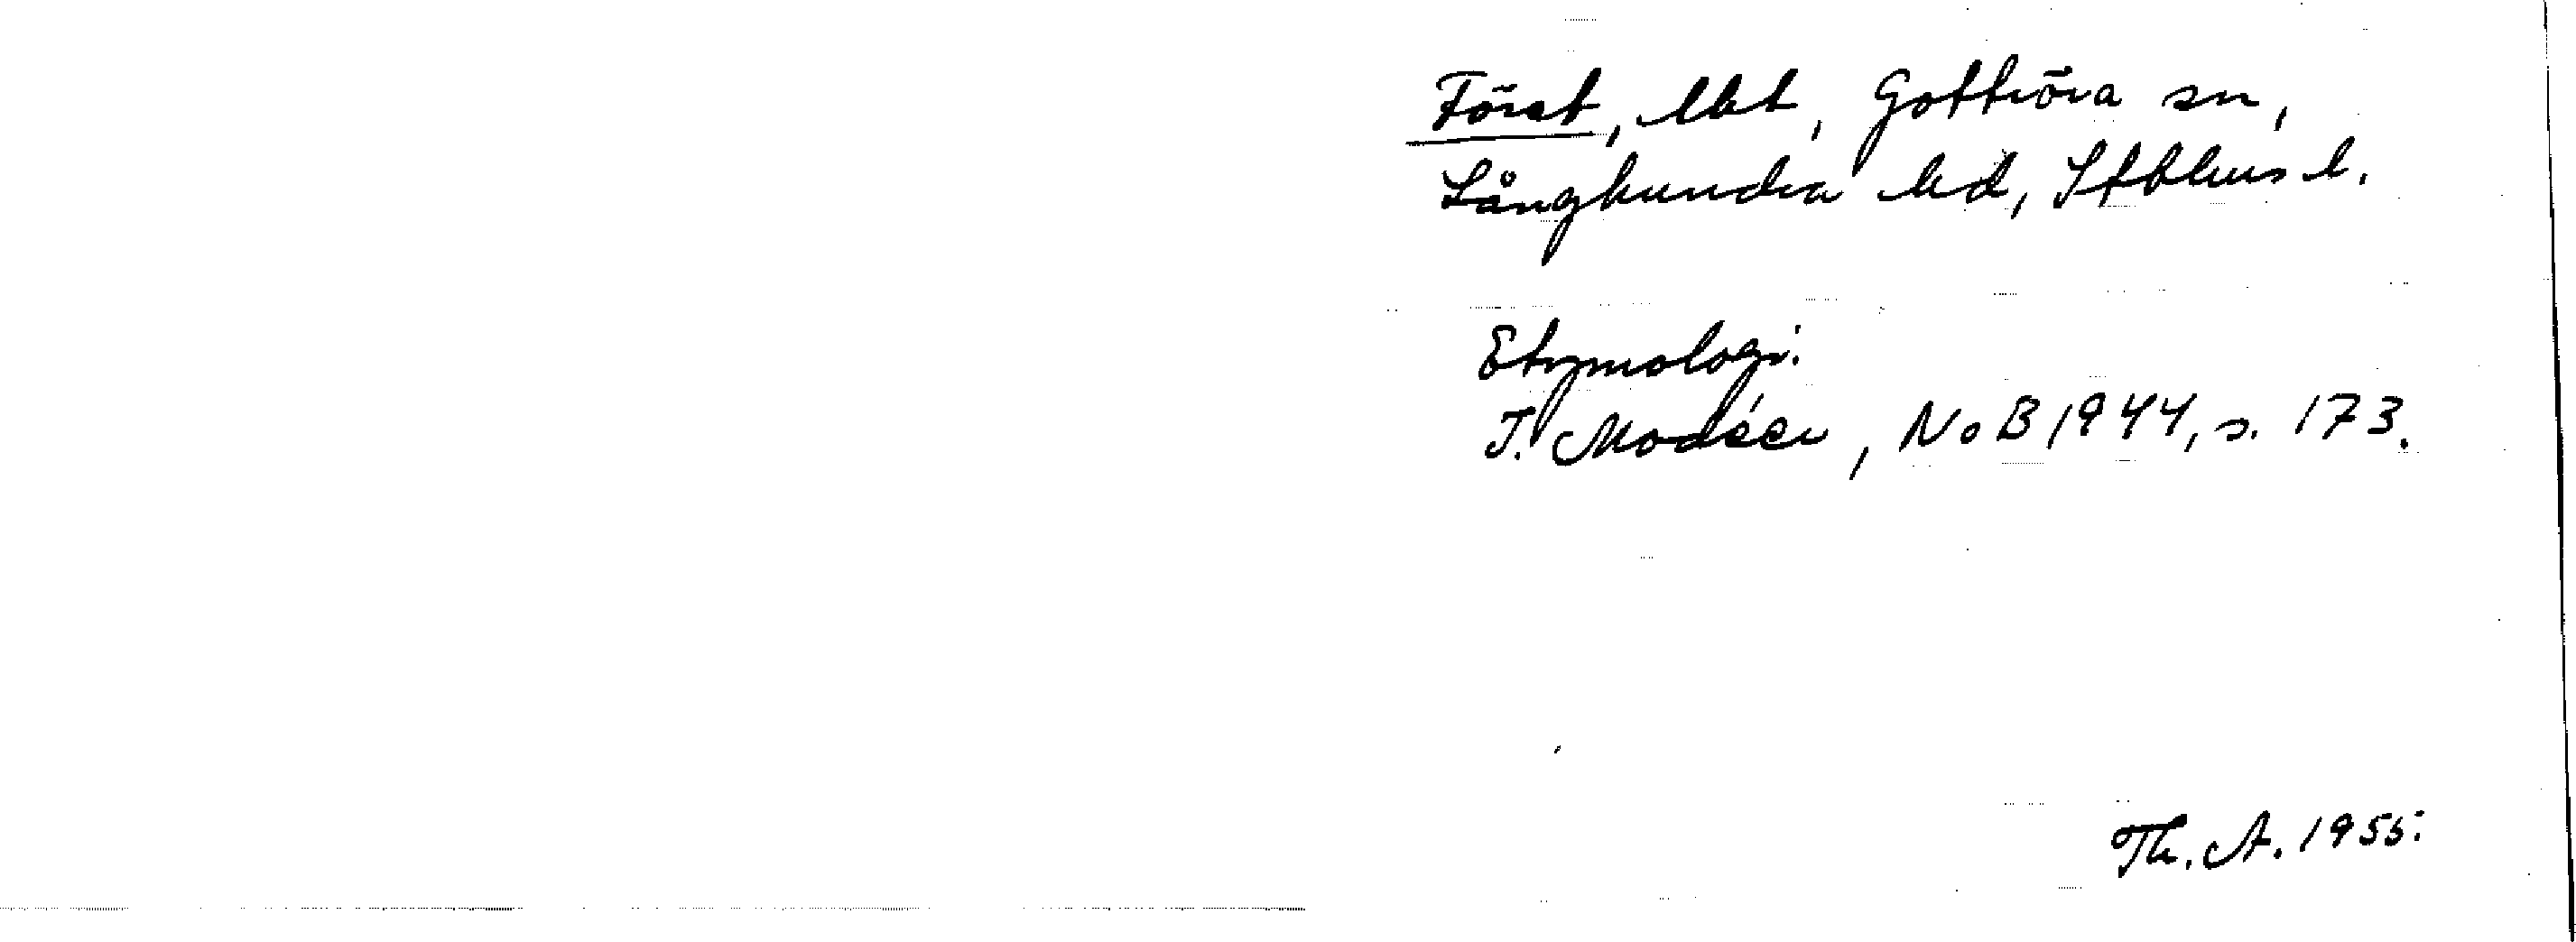 Först, lht, Gottröra sn,
Långhundra hd, Stbhus l.
Etymologi.
I. Modéer, NoB 1944, s. 173.
Th. A. 1955.